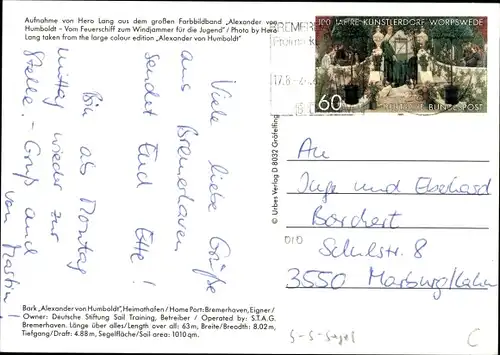 Aufnahme von Hero Lang aus dem großen Farbbildband „Alexander von
Humboldt - Vom Feuerschiff zum Windjammer für die Jugend"/ Photo by Hero
Lang taken from the large colour edition „Alexander von Humboldt"
Viele liebe Grüße
aus Bremerhaven
sendet Euch Etti!
Bin ab Montag
mittag wieder zur
Stelle. - Gruß auch
von Martin!
Bark „Alexander von Humboldt", Heimathafen / Home Port: Bremerhaven, Eigner /
Owner: Deutsche Stiftung Sail Training, Betreiber / Operated by: S.T.A.G.
Bremerhaven. Länge über alles/Length over all: 63 m, Breite/Breadth: 8.02 m,
Tiefgang/Draft: 4.88 m, Segelfläche/Sail area: 1010 qm.
© Urbes Verlag D 8032 Gräfelfing
BREMERH
17.8
100 JAHRE KÜNSTLERDORF WORPSWEDE
60
DEUTSCHE BUNDESPOST
An
Inge und Eberhard
Borchert
010
Schulstr. 8
3550 Marburg/Lahn
S-S-Segel
C